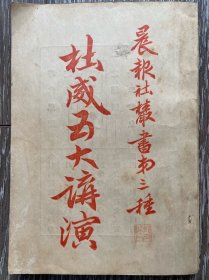 晨報社叢書第三種
杜威五大講演